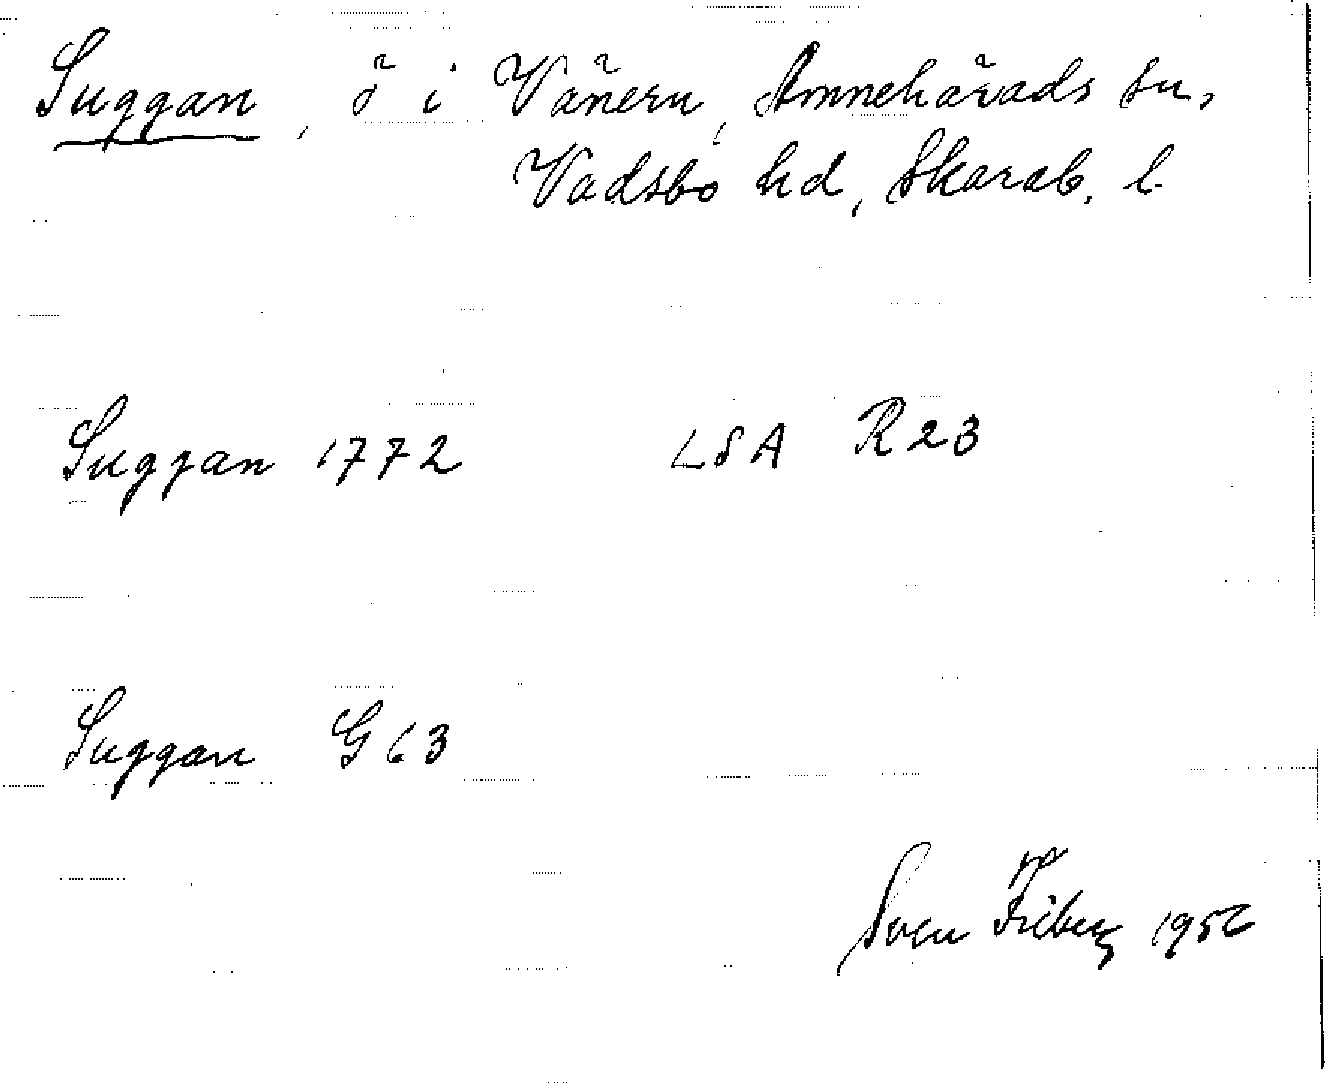 Suggan, ö i Vänern, Amnehärads sn,
Vadsbo hd, Skarab. l.
Suggan 1772 LSA R23
Suggan G63
Sven Friberg